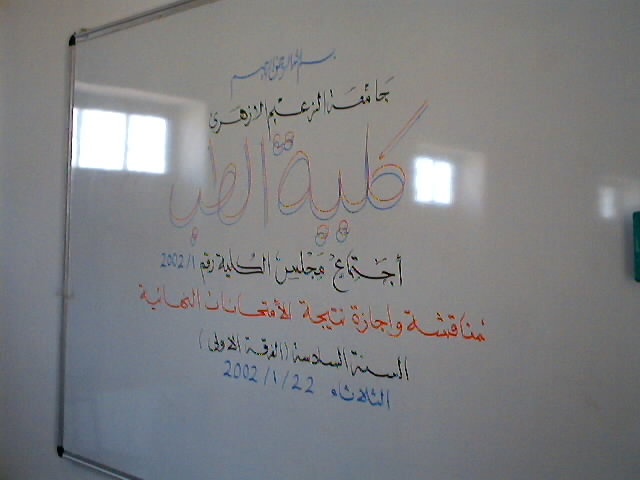 بسم الله الرحمن الرحيم
جامعة الزعيم الازهرى
كلية الطب
أجتماع مجلس الكلية رقم 2002/1
مناقشة واجازة نتيجة الأمتحانات النهائية
السنة السادسة (الفرقة الاولى)
الثلاثاء 2002/1/22